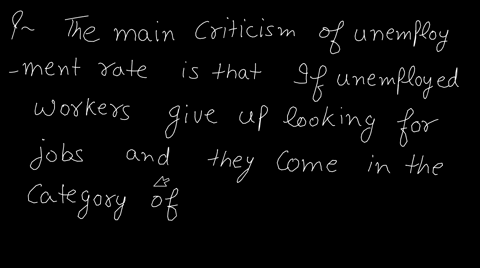 Q~ The main criticism of unemploy
-ment rate is that If unemployed
workers give up looking for
jobs and they come in the
category of